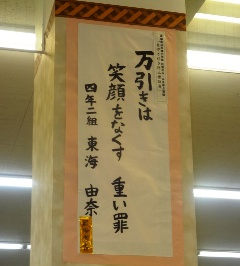 万引きは
笑顔をなくす 重い罪
四年二組 東海 由奈